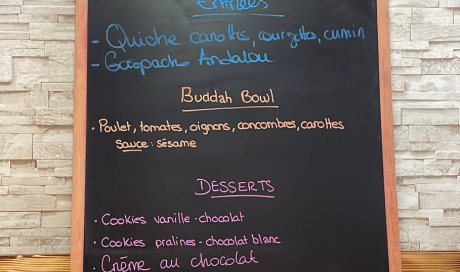 Entrées
- Quiche carottes, courgettes, cumin
- Gaspacho Andalou
Buddah Bowl
• Poulet, tomates, oignons, concombres, carottes
Sauce : sésame
DESSERTS
• Cookies vanille - chocolat
• Cookies pralines - chocolat blanc
• Crème au chocolat